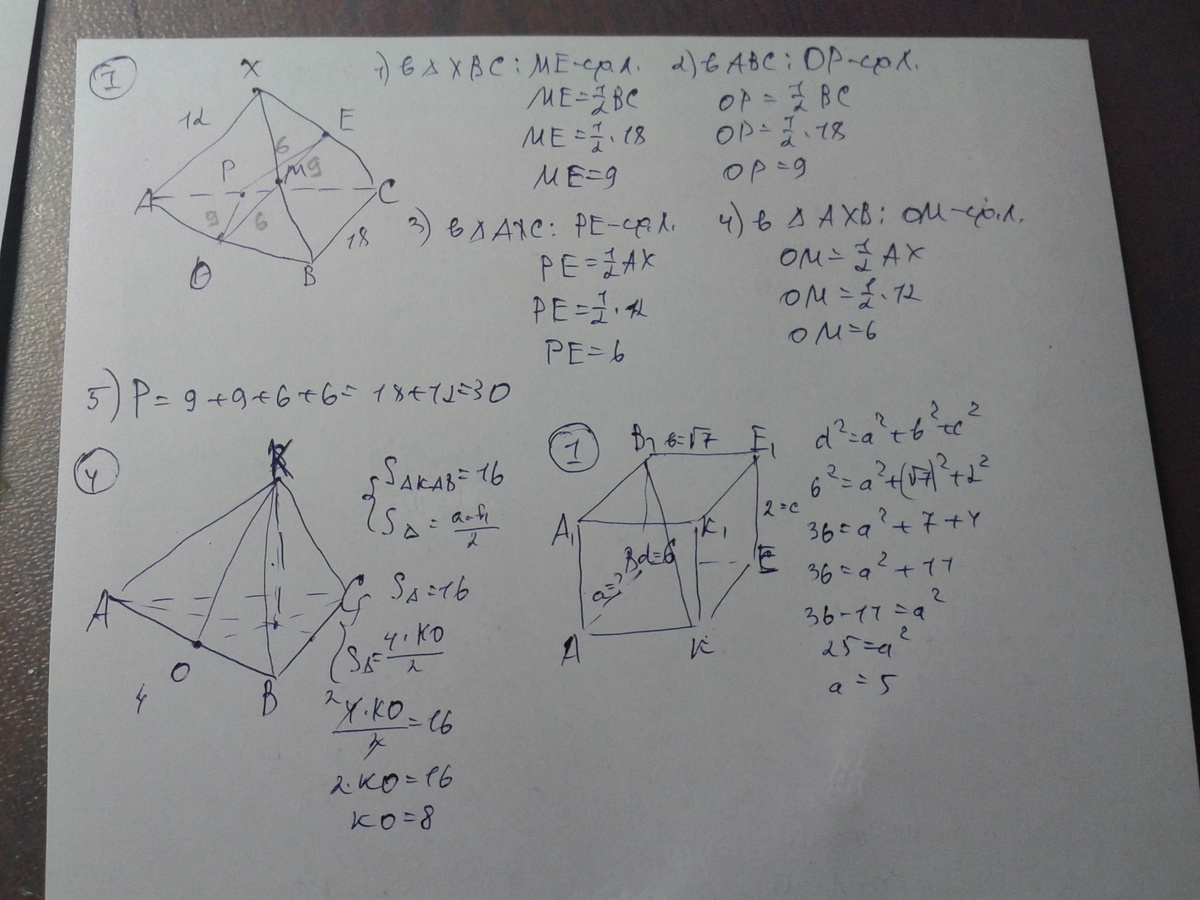 I
X
12
E
P
6
M
9
A
C
9
6
18
O
B
1) в Δ XBC: ME-ср.л.
ME=½BC
ME=½·18
ME=9
2) в ABC: OP-ср.л.
OP=½BC
OP=½·18
OP=9
3) в Δ AXC: PE-ср.л.
PE=½AX
PE=½·12
PE=6
4) в Δ AXB: OM-ср.л.
OM=½AX
OM=½·12
OM=6
5) P= 9+9+6+6= 18+12=30
4
K
A
C
O
B
4
S ΔKAB=16
S Δ = a·h/2
S Δ=16
S Δ= 4·KO/2
2
4·KO/2=16
2·KO=16
KO=8
1
B₁
в=√7
E₁
A₁
K₁
2=c
B
d=6
E
a=?
A
K
d²=a²+в²+c²
6²=a²+(√7)²+2²
36=a²+7+4
36=a²+11
36-11=a²
25=a²
a=5